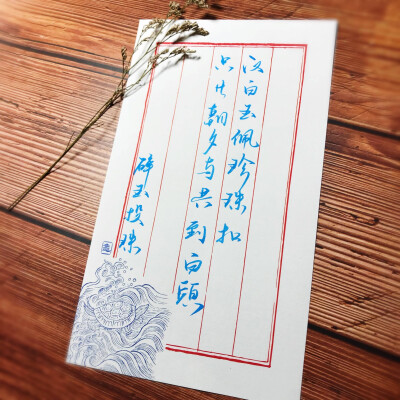 汉白玉佩珍珠扣
只也朝夕与共到白頭
碎玉投珠